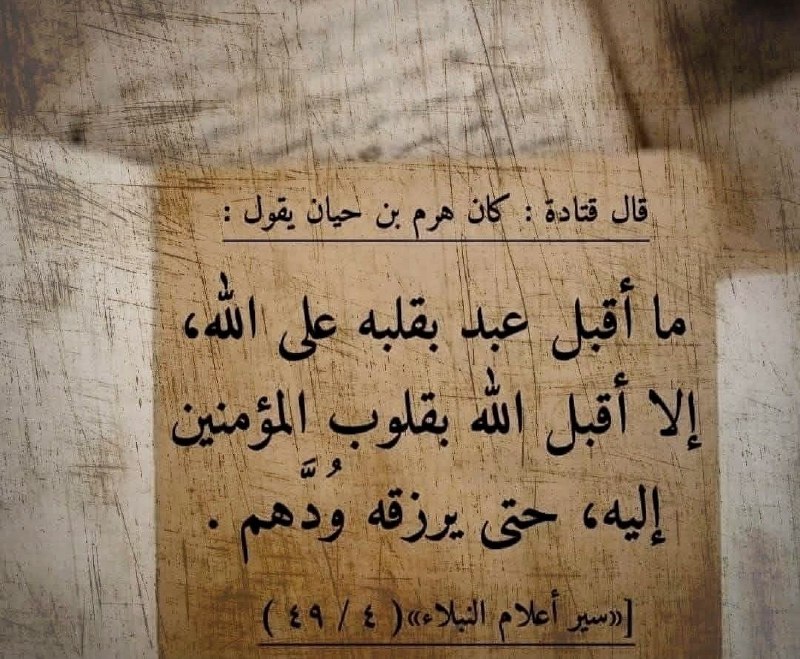 قال قتادة : كان هرم بن حيان يقول :
ما أقبل عبد بقلبه على الله،
إلا أقبل الله بقلوب المؤمنين
إليه، حتى يرزقه وُدَّهم .
[«سير أعلام النبلاء»( ٤ / ٤٩ )